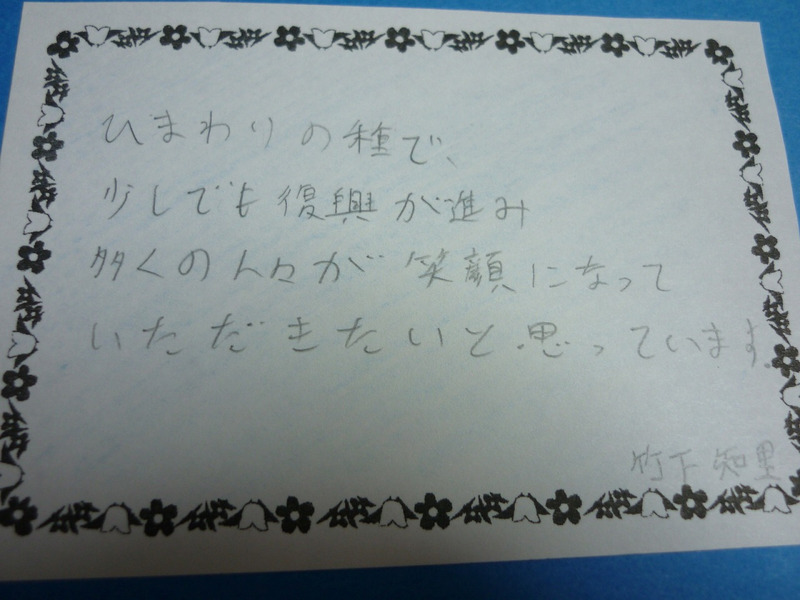 ひまわりの種で、
少しでも復興が進み
多くの人々が笑顔になって
いただきたいと思っています。
竹下知里